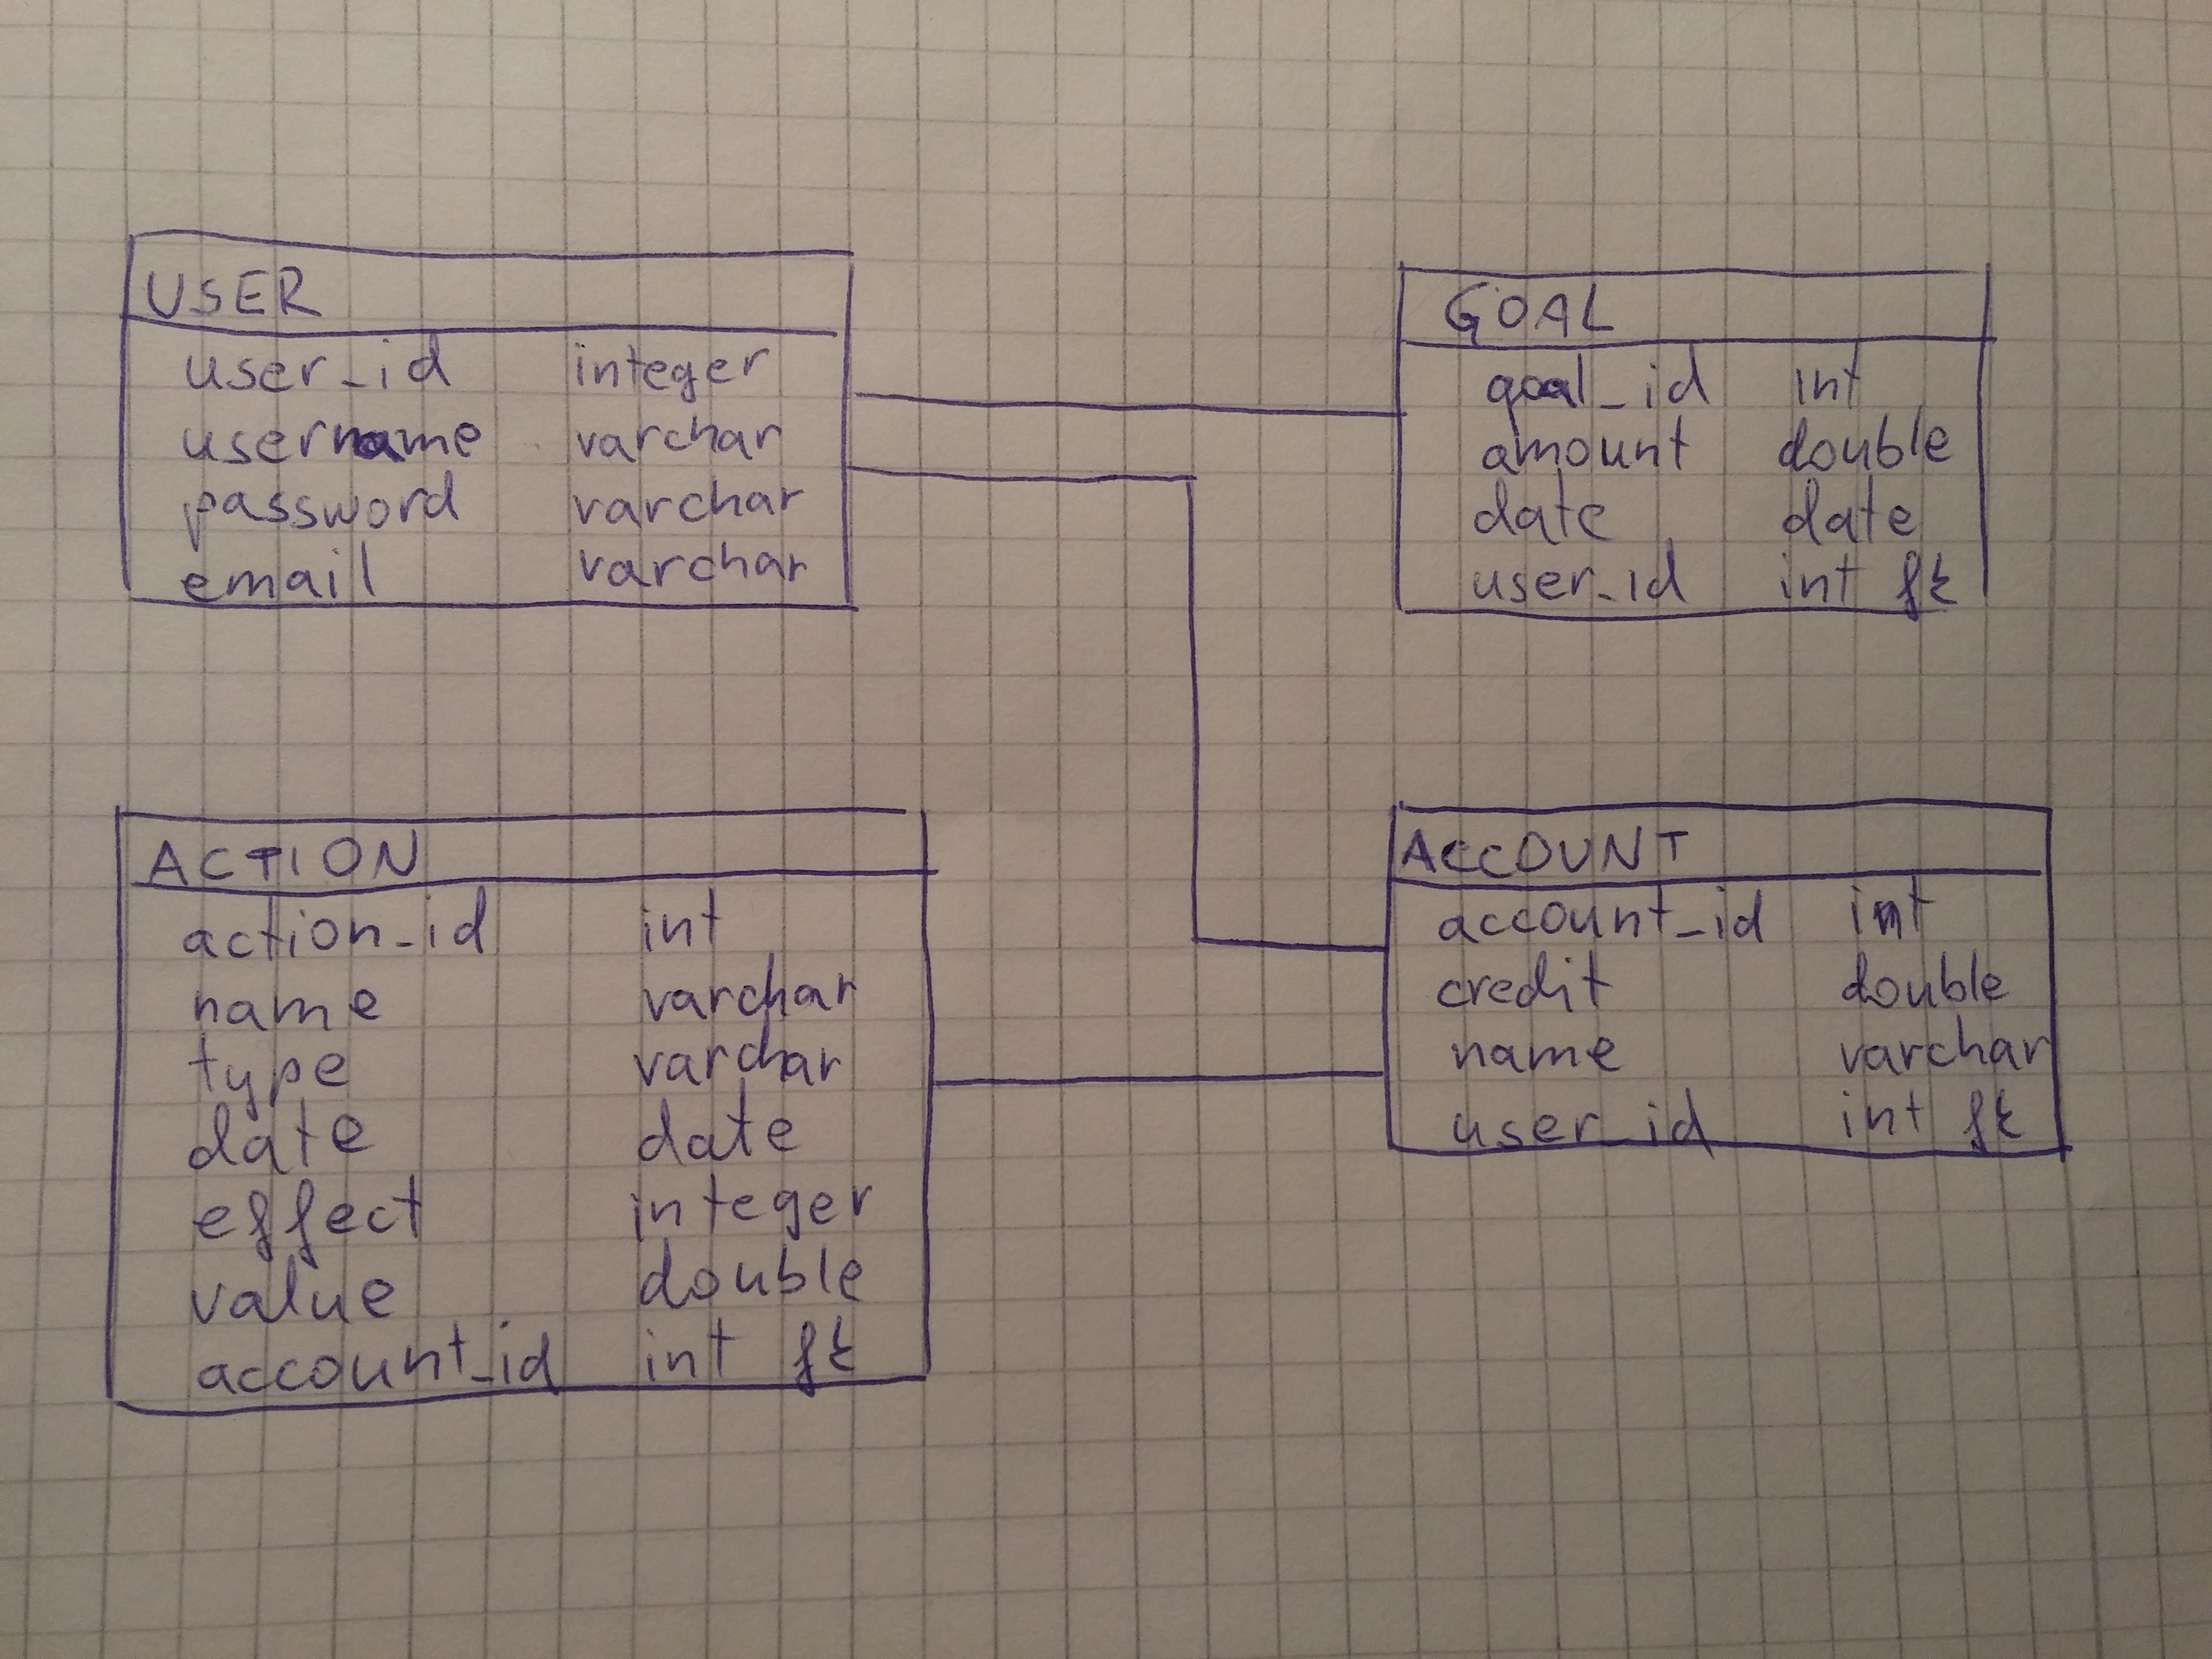 USER
user_id integer
username varchar
password varchar
email varchar
GOAL
goal_id int
amount double
date date
user_id int fk
ACTION
action_id int
name varchar
type varchar
date date
effect integer
value double
account_id int fk
ACCOUNT
account_id int
credit double
name varchar
user_id int fk